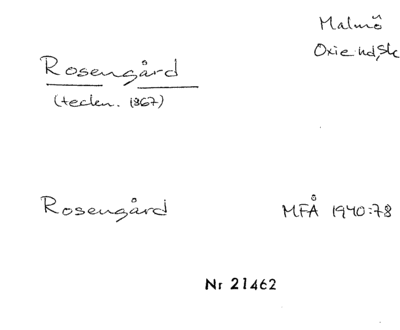 Malmö
Oxie hd, Sk
Rosengård
(teckn. 1867)
Rosengård
MFÅ 1940:78
Nr 21462